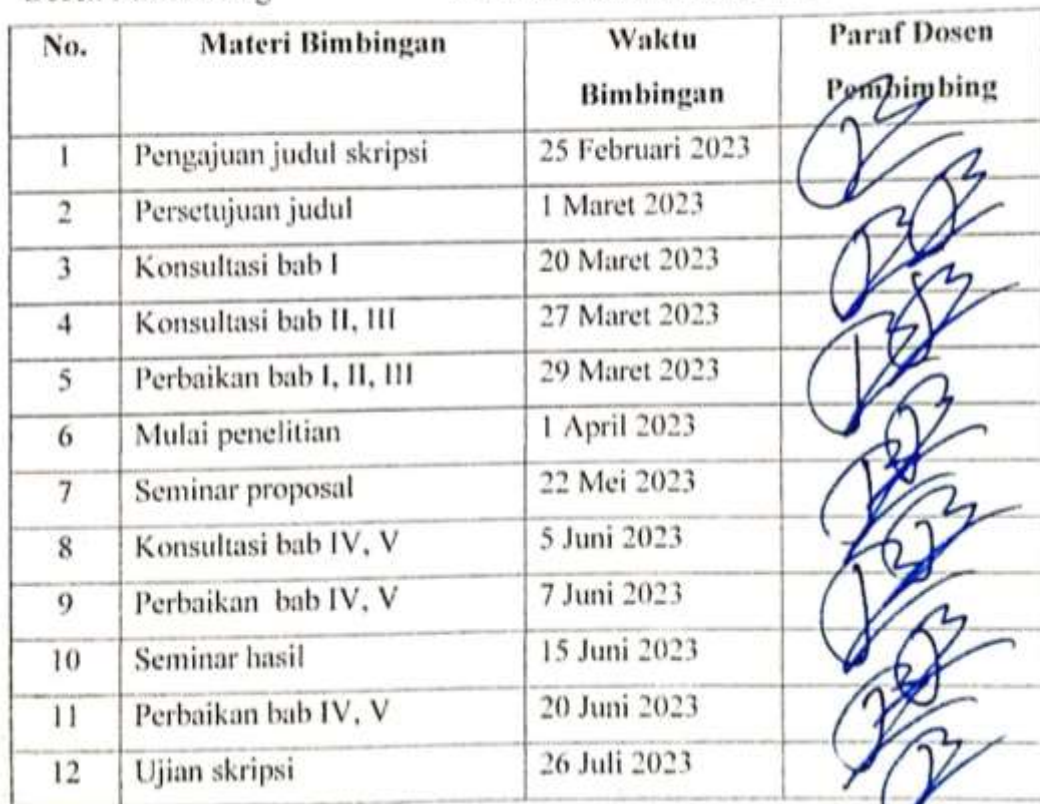 No. Materi Bimbingan Waktu Bimbingan Paraf Dosen Pembimbing
1 Pengajuan judul skripsi 25 Februari 2023
2 Persetujuan judul 1 Maret 2023
3 Konsultasi bab I 20 Maret 2023
4 Konsultasi bab II, III 27 Maret 2023
5 Perbaikan bab I, II, III 29 Maret 2023
6 Mulai penelitian 1 April 2023
7 Seminar proposal 22 Mei 2023
8 Konsultasi bab IV, V 5 Juni 2023
9 Perbaikan bab IV, V 7 Juni 2023
10 Seminar hasil 15 Juni 2023
11 Perbaikan bab IV, V 20 Juni 2023
12 Ujian skripsi 26 Juli 2023